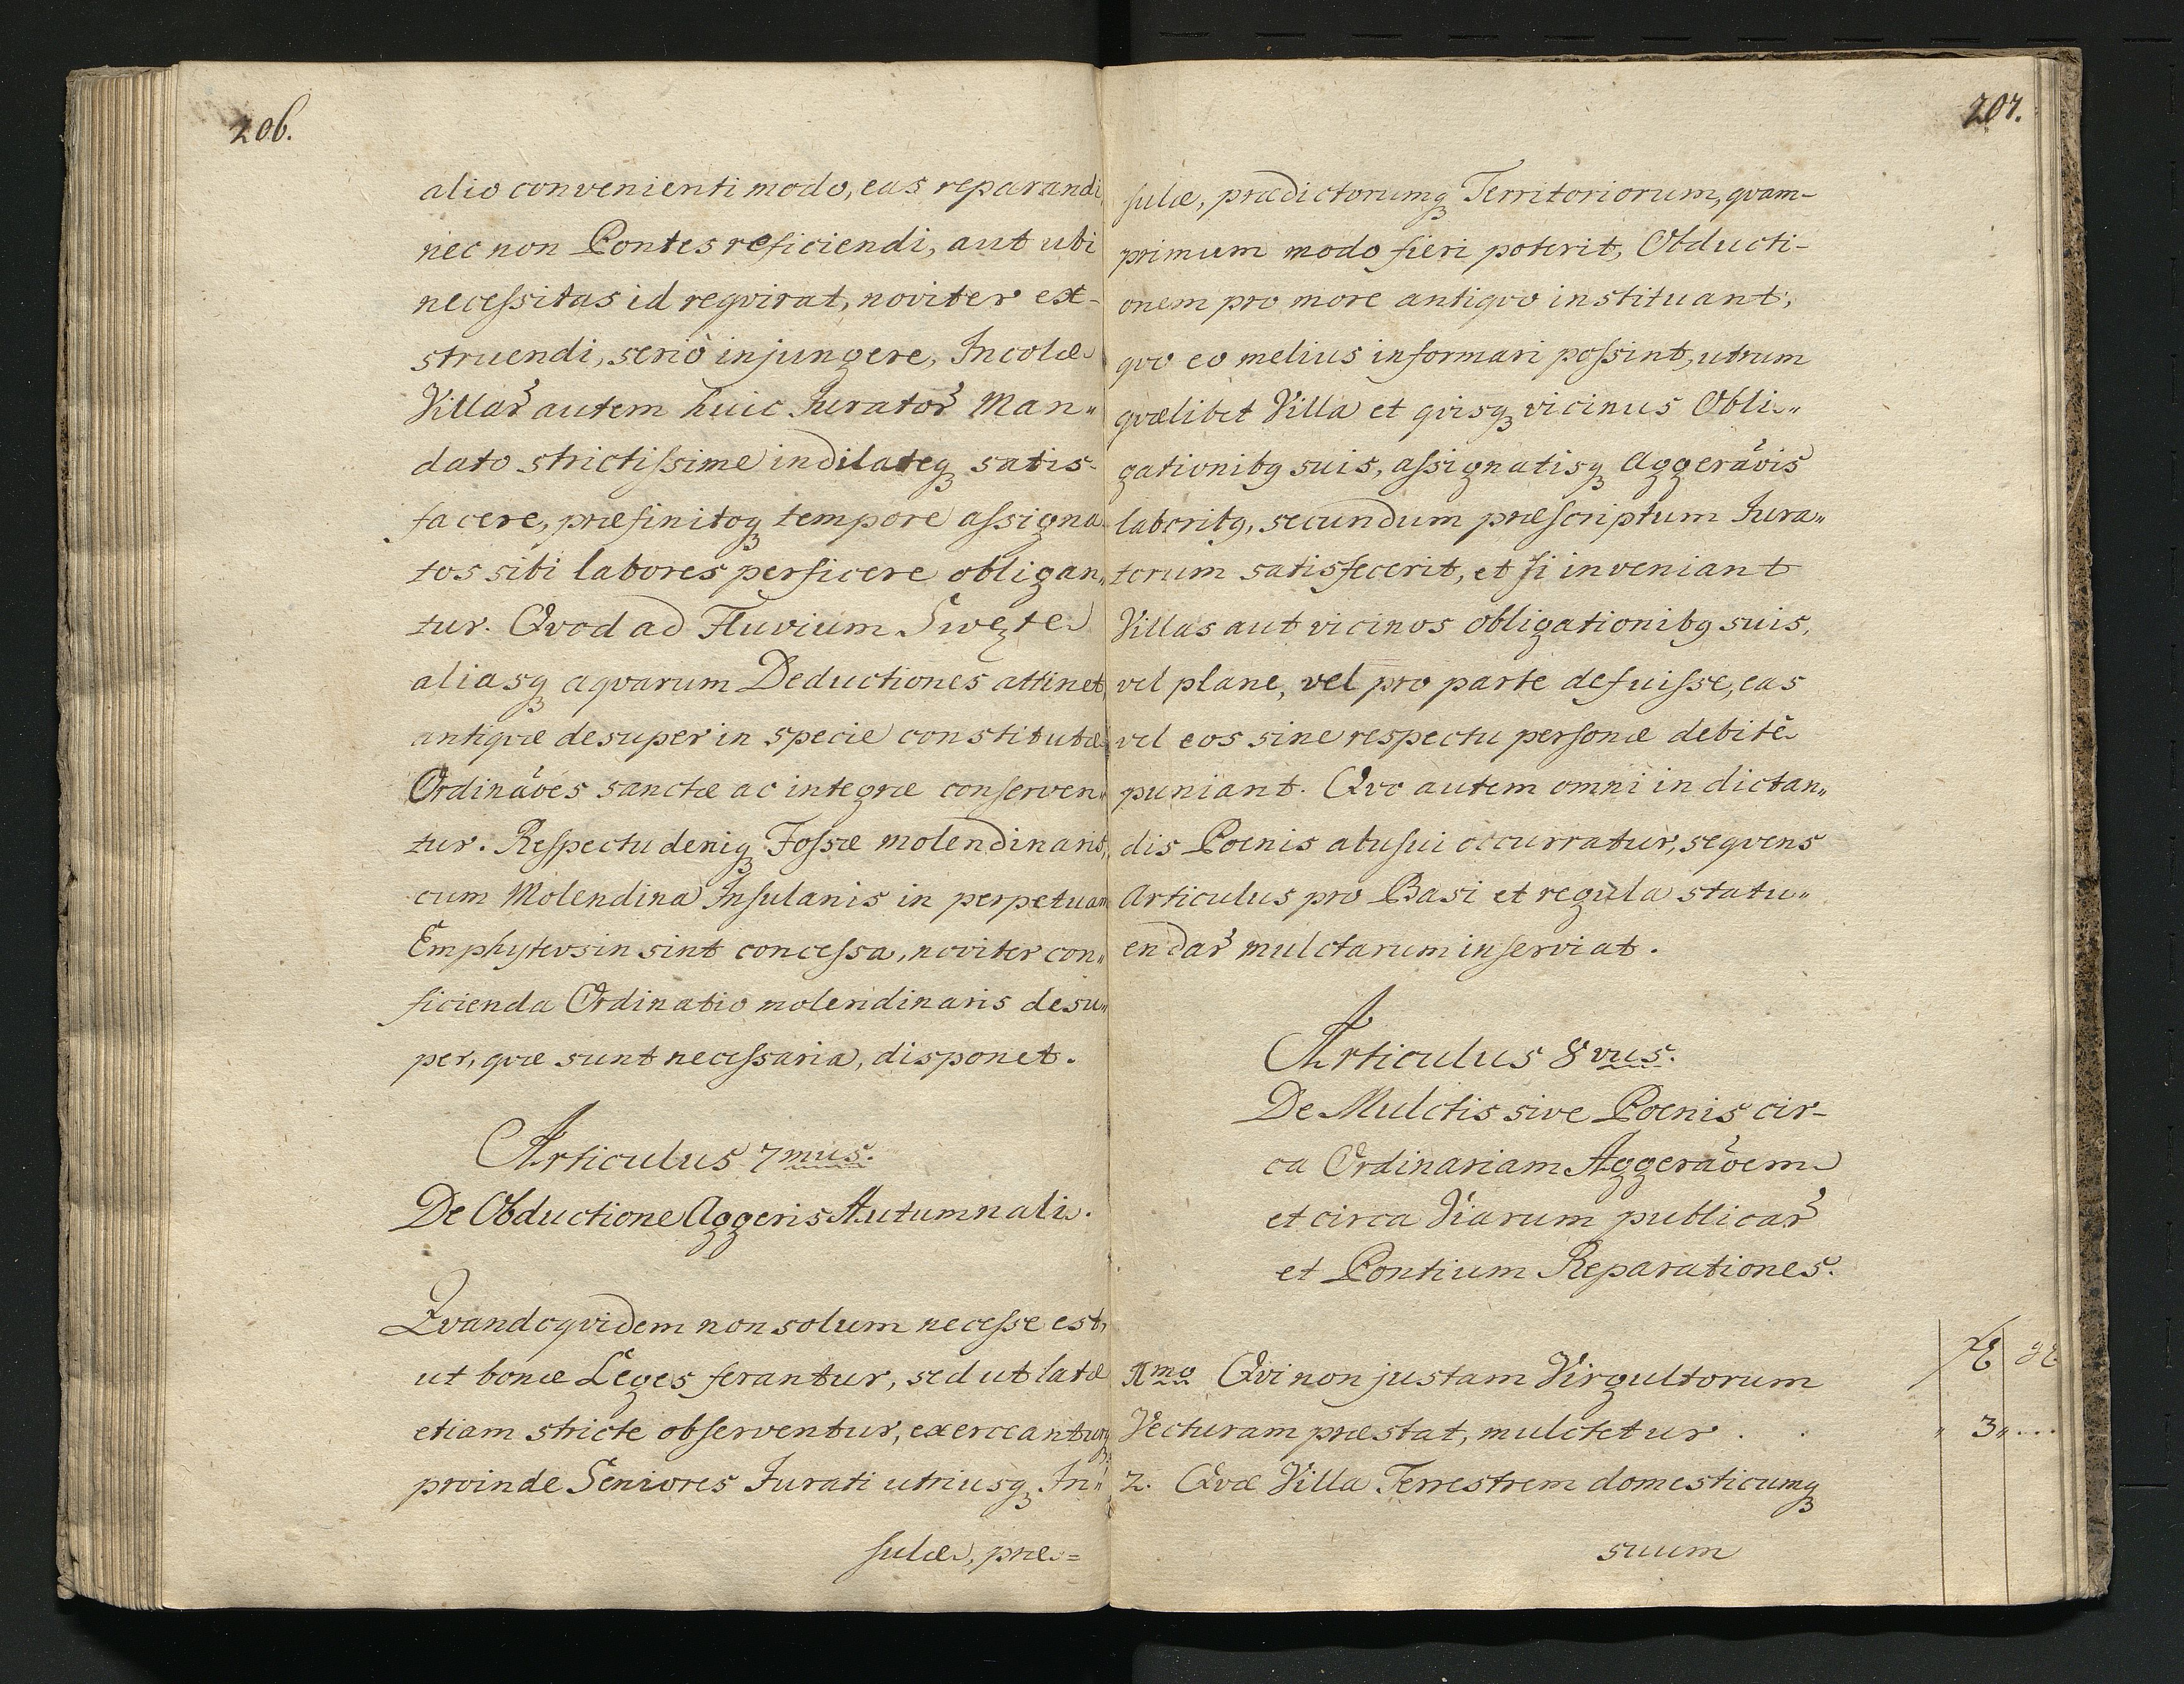 206.
alio convenienti modo, eas reparandi
nec non Pontes reficiendi, aut ubi
necessitas id reqvirat, noviter ex-
struendi, seriò injungere, Incolæ
Villar̃ autem huic Jurator̃ Man„
dato strictissime indilateqꝫ satis-
facere, præfinitoqꝫ tempore assigna-
tos sibi labores perficere obligan„
tur. Qvod ad Fluvium Swęte
aliasqꝫ aqvarum Deductiones attinet,
antiqvæ desuper in specie constitutæ
Ordinãoes sanctæ ac integræ conserven„
tur. Respectu deniqꝫ Fossæ molendinaris,
cum Molendina Insulanis in perpetuam
Emphytevsin sint concessa, noviter con„
ficienda Ordinatio molendinaris desu„
per, qvæ sunt necessaria, disponet.
Articulus 7mus.
De Obductione Aggeris Autumnali.
Qvandoqvidem non solum necesse est,
ut bonæ Leges ferantur, sed ut latæ
etiam stricte observentur, exerceanturqꝫ
proinde Seniores Jurati utriusqꝫ In„
sulæ, præ=
207.
sulæ, prædictorumqꝫ Territoriorum, qvam-
primum modo fieri poterit, Obducti-
onem pro more antiqvo instituant,
qvo eo melius informari possint, utrum
qvælibet Villa et qvisqꝫ vicinus Obli„
gationibꝯ suis, assignatisqꝫ Aggerãois
laboribꝯ, secundum præscriptum Jura„
torum satisfecerit, et si inveniant
Villas aut vicinos obligationibꝯ suis,
vel plane, vel pro parte defuisse, eas
vel eos sine respectu personæ debitè
puniant. Qvo autem omni in dictan„
dis Poenis abusui occurratur, seqvens
Articulus pro Basi et regula statu„
endar̃ mulctarum inserviat.
Articulus 8vus.
De Mulctis sive Poenis cir-
ca Ordinariam Aggerãoem
et circa Viarum publicar̃
et Pontium Reparationes.
1mo Qvi non justam Virgultorum
Vecturam præstat, mulctetur . . „ 3„...
2. Qvæ Villa Terrestrem domesticumqꝫ
suum